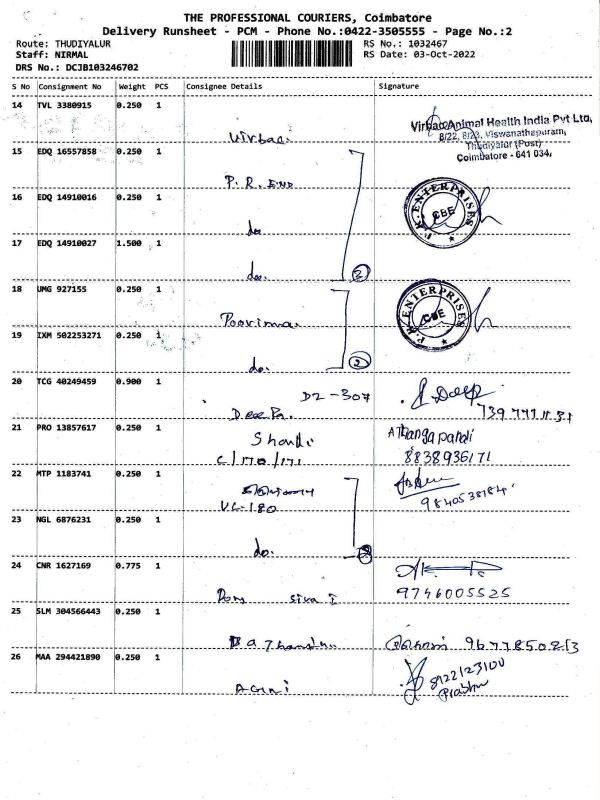 THE PROFESSIONAL COURIERS, Coimbatore
Delivery Runsheet - PCM - Phone No.:0422-3505555 - Page No.:2
Route: THUDIYALUR
RS No.: 1032467
Staff: NIRMAL
RS Date: 03-Oct-2022
DRS No.: DCJB103246702
S No Consignment No Weight PCS Consignee Details Signature
14 TVL 3380915 0.250 1
Virbac
Virbac Animal Health India Pvt Ltd,
8/22, 8/23, Viswanathapuram,
Thudiyalur (Post)
Coimbatore - 641 034.
15 EDQ 16557858 0.250 1
P. R. END
16 EDQ 14910016 0.250 1
do.
P.K. ENTERPRISES
CBE
17 EDQ 14910027 1.500 1
do.
18 UMG 927155 0.250 1
Poorima
P.K. ENTERPRISES
CBE
19 IXM 502253271 0.250 1
do.
20 TCG 40249459 0.900 1
D2 - 307
21 PRO 13857617 0.250 1
C/170/171
A Thangapandi
8838936171
22 MTP 1183741 0.250 1
VL-180
9840538184
23 NGL 6876231 0.250 1
do.
24 CNR 1627169 0.775 1
Siva I
9746005525
25 SLM 304566443 0.250 1
26 MAA 294421890 0.250 1
Agni
8122123100
Prabhu